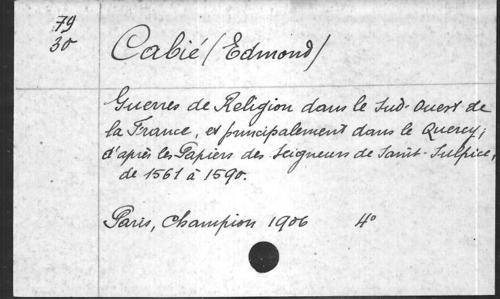 79
30
Cabié (Edmond)
Guerres de Religion dans le Sud-Ouest de
la France, et principalement dans le Quercy;
d'après les Papiers des Seigneurs de Saint-Sulpice,
de 1561 à 1590.
Paris, Champion 1906 4°